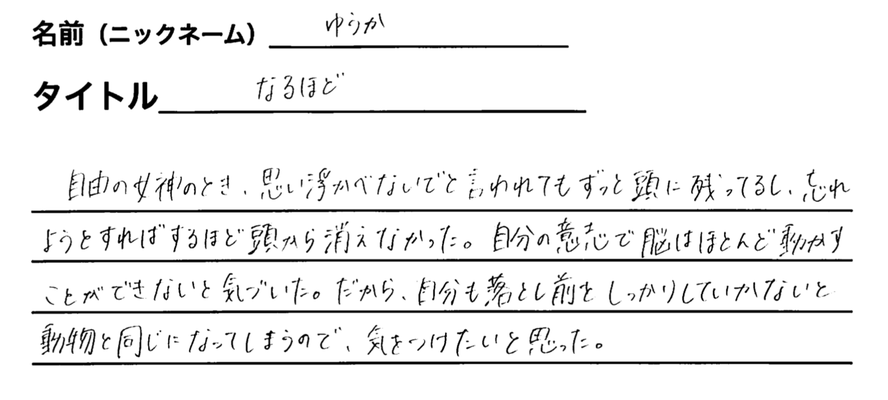 名前（ニックネーム） ゆうか
タイトル なるほど
自由の女神のとき、思い浮かべないでと言われてもずっと頭に残ってるし、忘れ
ようとすればするほど頭から消えなかった。自分の意志で脳はほとんど動かす
ことができないと気づいた。だから、自分も落とし前をしっかりしていかないと
動物と同じになってしまうので、気をつけたいと思った。